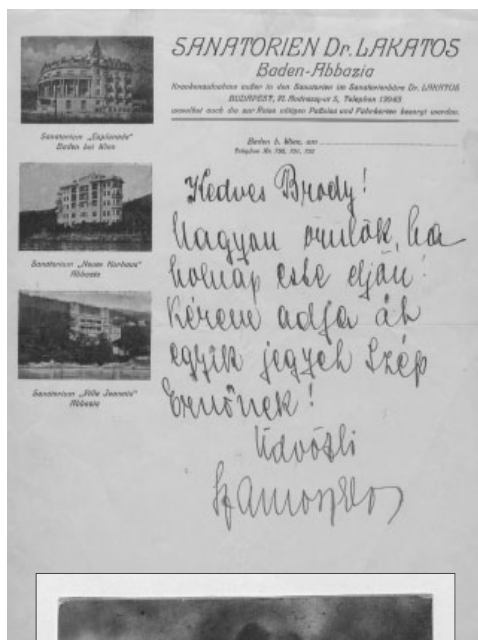 SANATORIEN Dr. LAKATOS
Baden-Abbazia
Krankenaufnahme außer in den Sanatorien im Sanatorienbüro Dr. LAKATOS
BUDAPEST, VI. Andrássy-ut 5, Telephon
woselbst auch die zur Reise nötigen Paßvisa und Fahrkarten besorgt werden.
Sanatorium „Esplanade"
Baden bei Wien
Baden b. Wien, am
Telephon Nr. 730, 731, 732
Sanatorium „Neues Kurhaus"
Abbazia
Sanatorium „Villa Jeanette"
Abbazia
Kedves Bródy!
Nagyon örülök, ha
holnap este eljön!
Kérem adja át
egyik jegyet Szép
Ernőnek!
Üdvözli